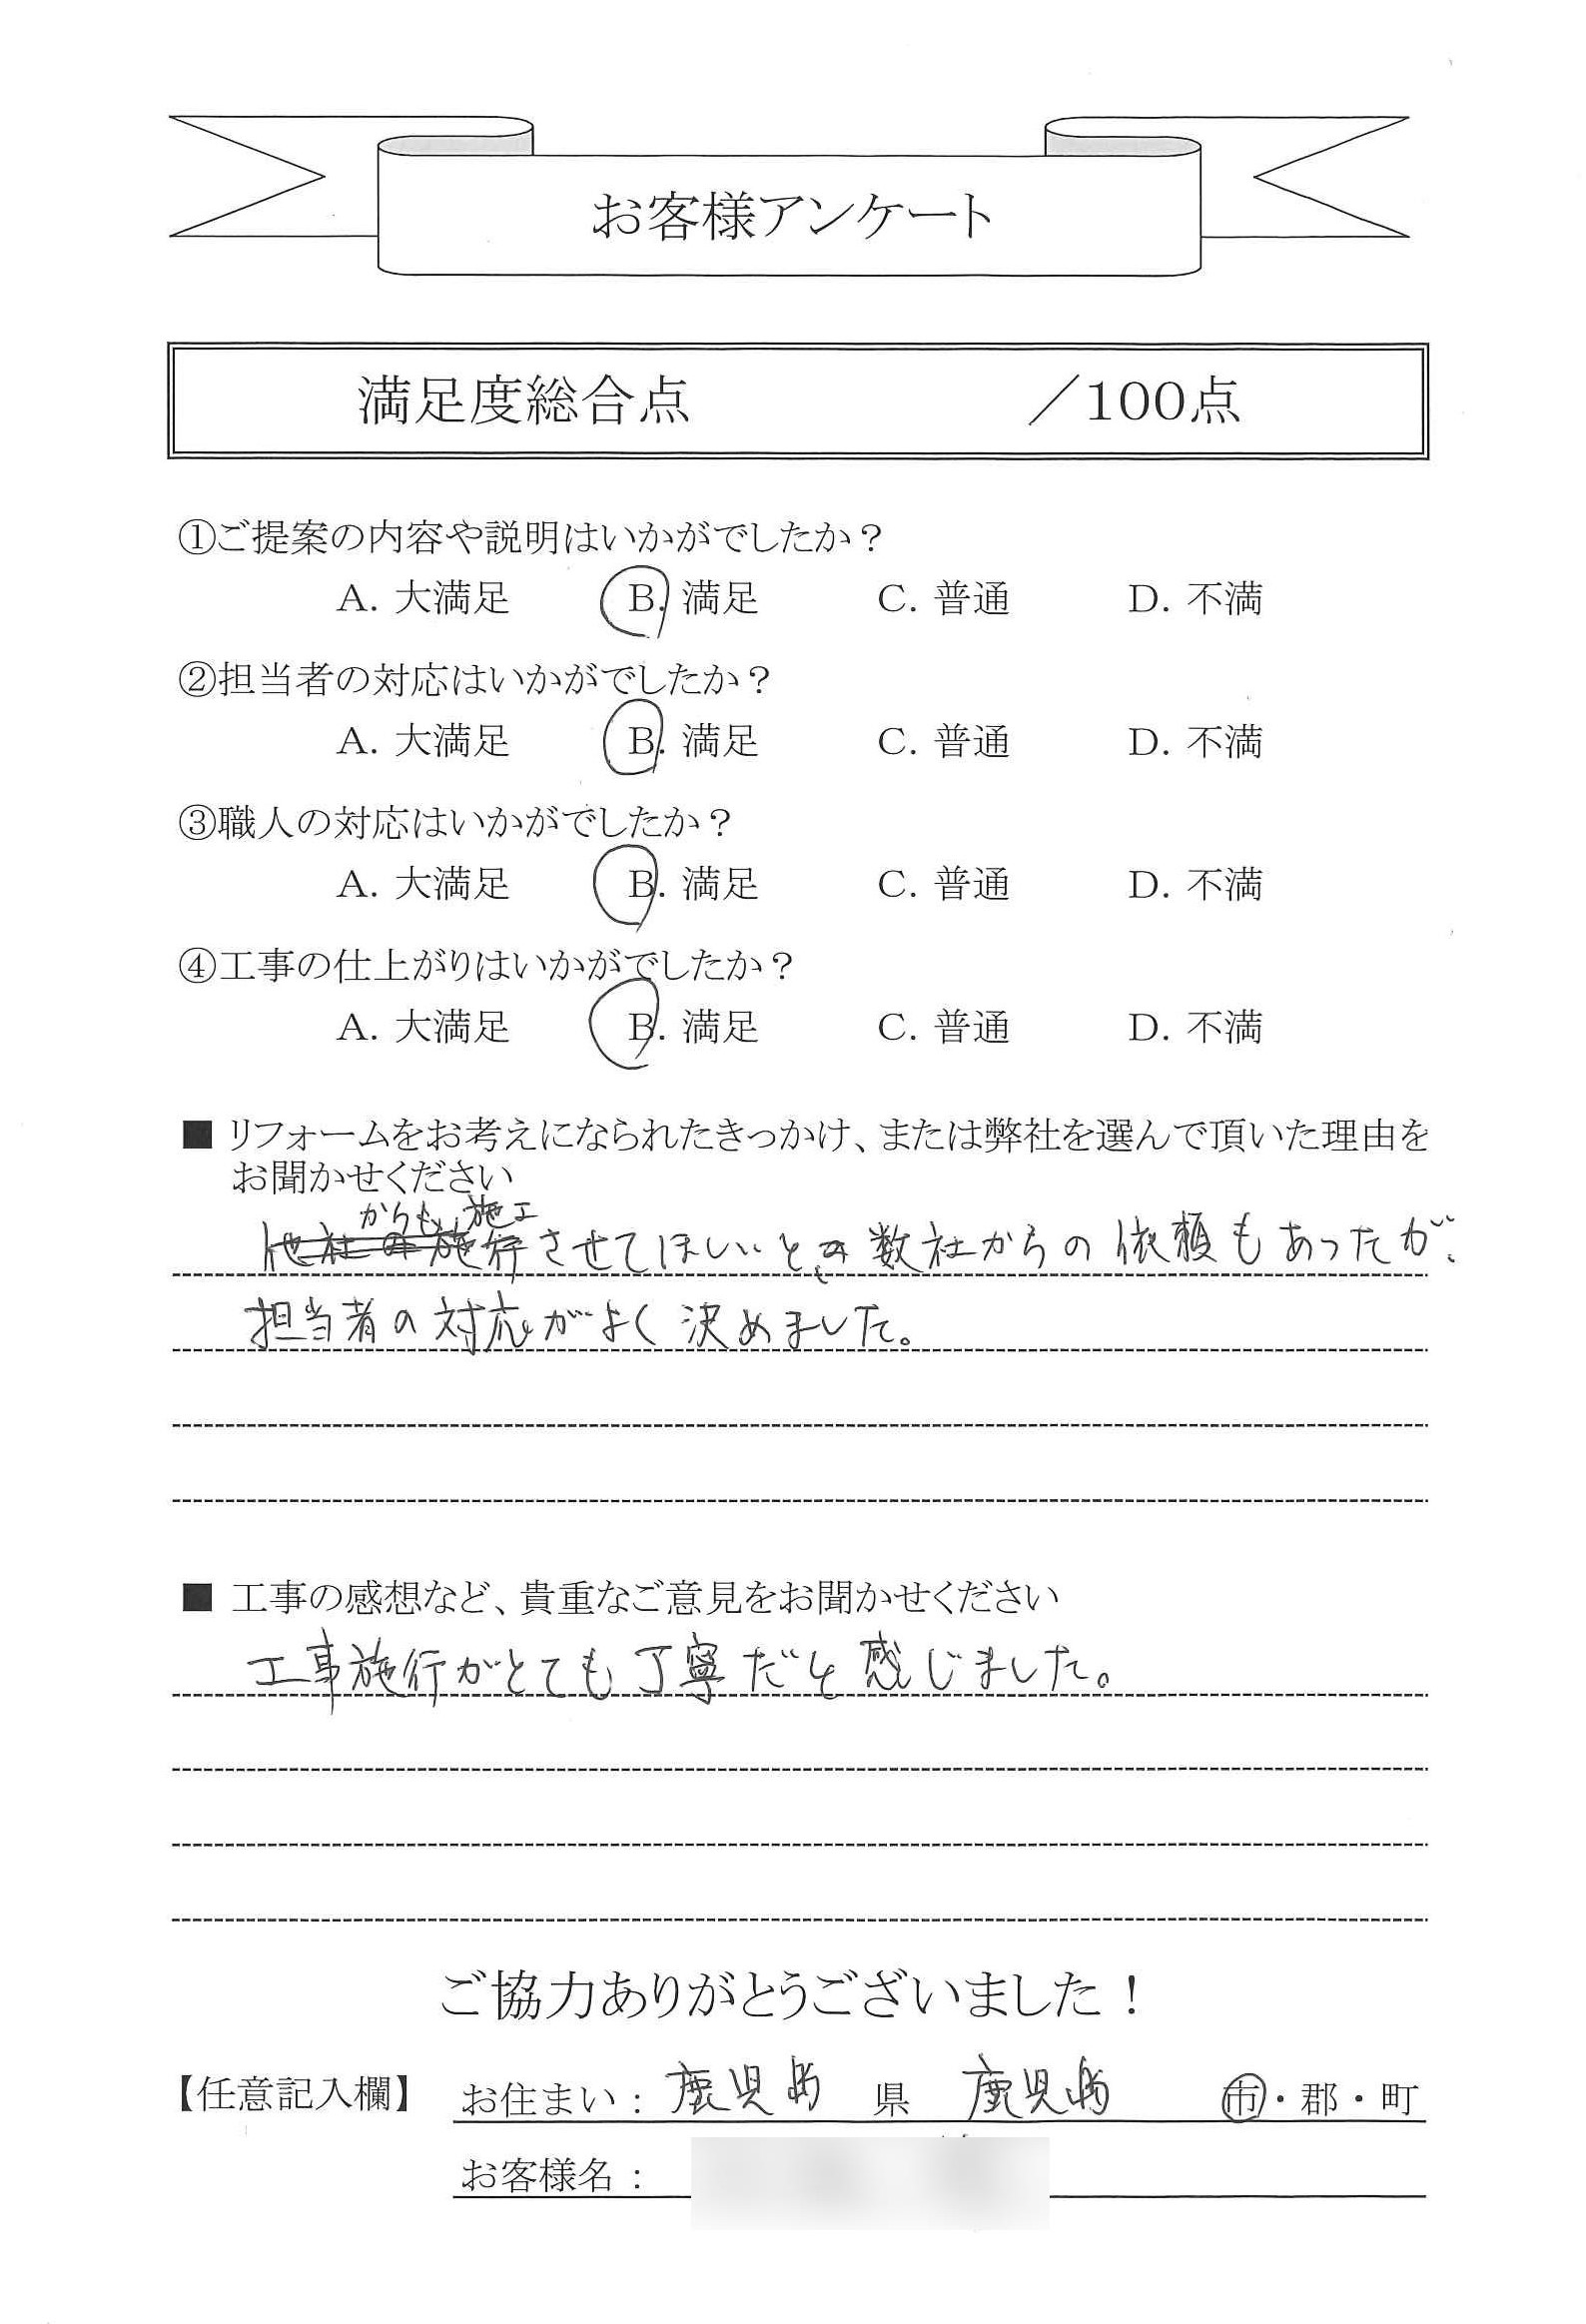 お客様アンケート
満足度総合点 ／100点
①ご提案の内容や説明はいかがでしたか？
A. 大満足 B. 満足 C. 普通 D. 不満
②担当者の対応はいかがでしたか？
A. 大満足 B. 満足 C. 普通 D. 不満
③職人の対応はいかがでしたか？
A. 大満足 B. 満足 C. 普通 D. 不満
④工事の仕上がりはいかがでしたか？
A. 大満足 B. 満足 C. 普通 D. 不満
■ リフォームをお考えになられたきっかけ、または弊社を選んで頂いた理由を
お聞かせください
からも 施工
他社の施行させてほしいと 数社からの依頼もあったが、
担当者の対応がよく決めました。
■ 工事の感想など、貴重なご意見をお聞かせください
工事施行がとても丁寧だと感じました。
ご協力ありがとうございました！
【任意記入欄】 お住まい： 鹿児島 県 鹿児島 市・郡・町
お客様名：